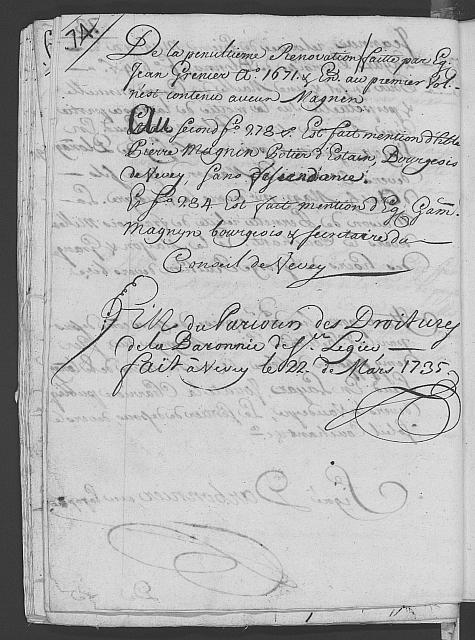 74.
De la penultieme Renovation faitte par Eg.
Jean Grenier A.° 1671. & En au premier Vol.
n'est contenu aucun Magnin
Au second f.° 273 Est fait mention d'h.ble
Pierre Magnin Potier d'Estain, Bourgeois
de Vevey, sans descendance.
En f.° 284 Est fait mention d'Eg. Gam.
Magnyn bourgeois & secretaire du
Conseil de Vevey
Fin du Parcours des Droitures
de la Baronnie de S.t Legier
fait à Vevey le 22. de Mars 1735.